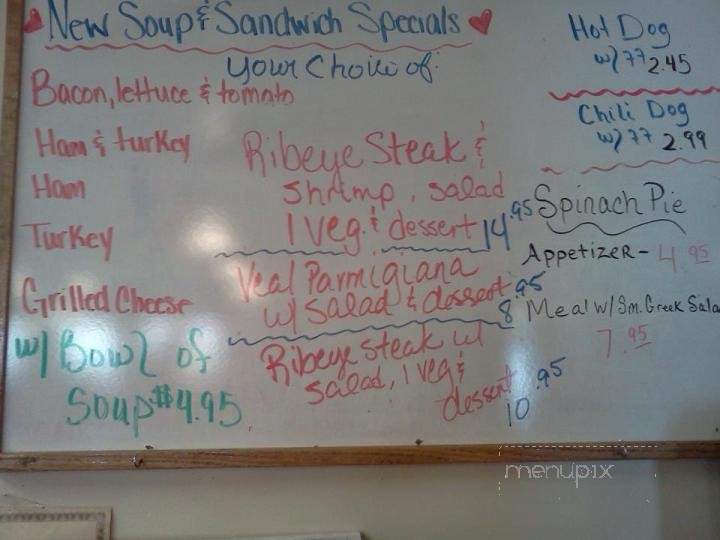 New Soup & Sandwich Specials
Your Choice of:
Bacon, lettuce & tomato
Ham & turkey
Ham
Turkey
Grilled Cheese
w/ Bowl of
Soup $4.95
Ribeye Steak &
shrimp, salad
1 veg. & dessert 14.95
Veal Parmigiana
w/ salad & dessert 8.95
Ribeye steak w/
salad, 1 veg &
dessert 10.95
Hot Dog
w/ FF 2.45
Chili Dog
w/ FF 2.99
Spinach Pie
Appetizer - 4.95
Meal w/ Sm. Greek Sala
7.95
menupix